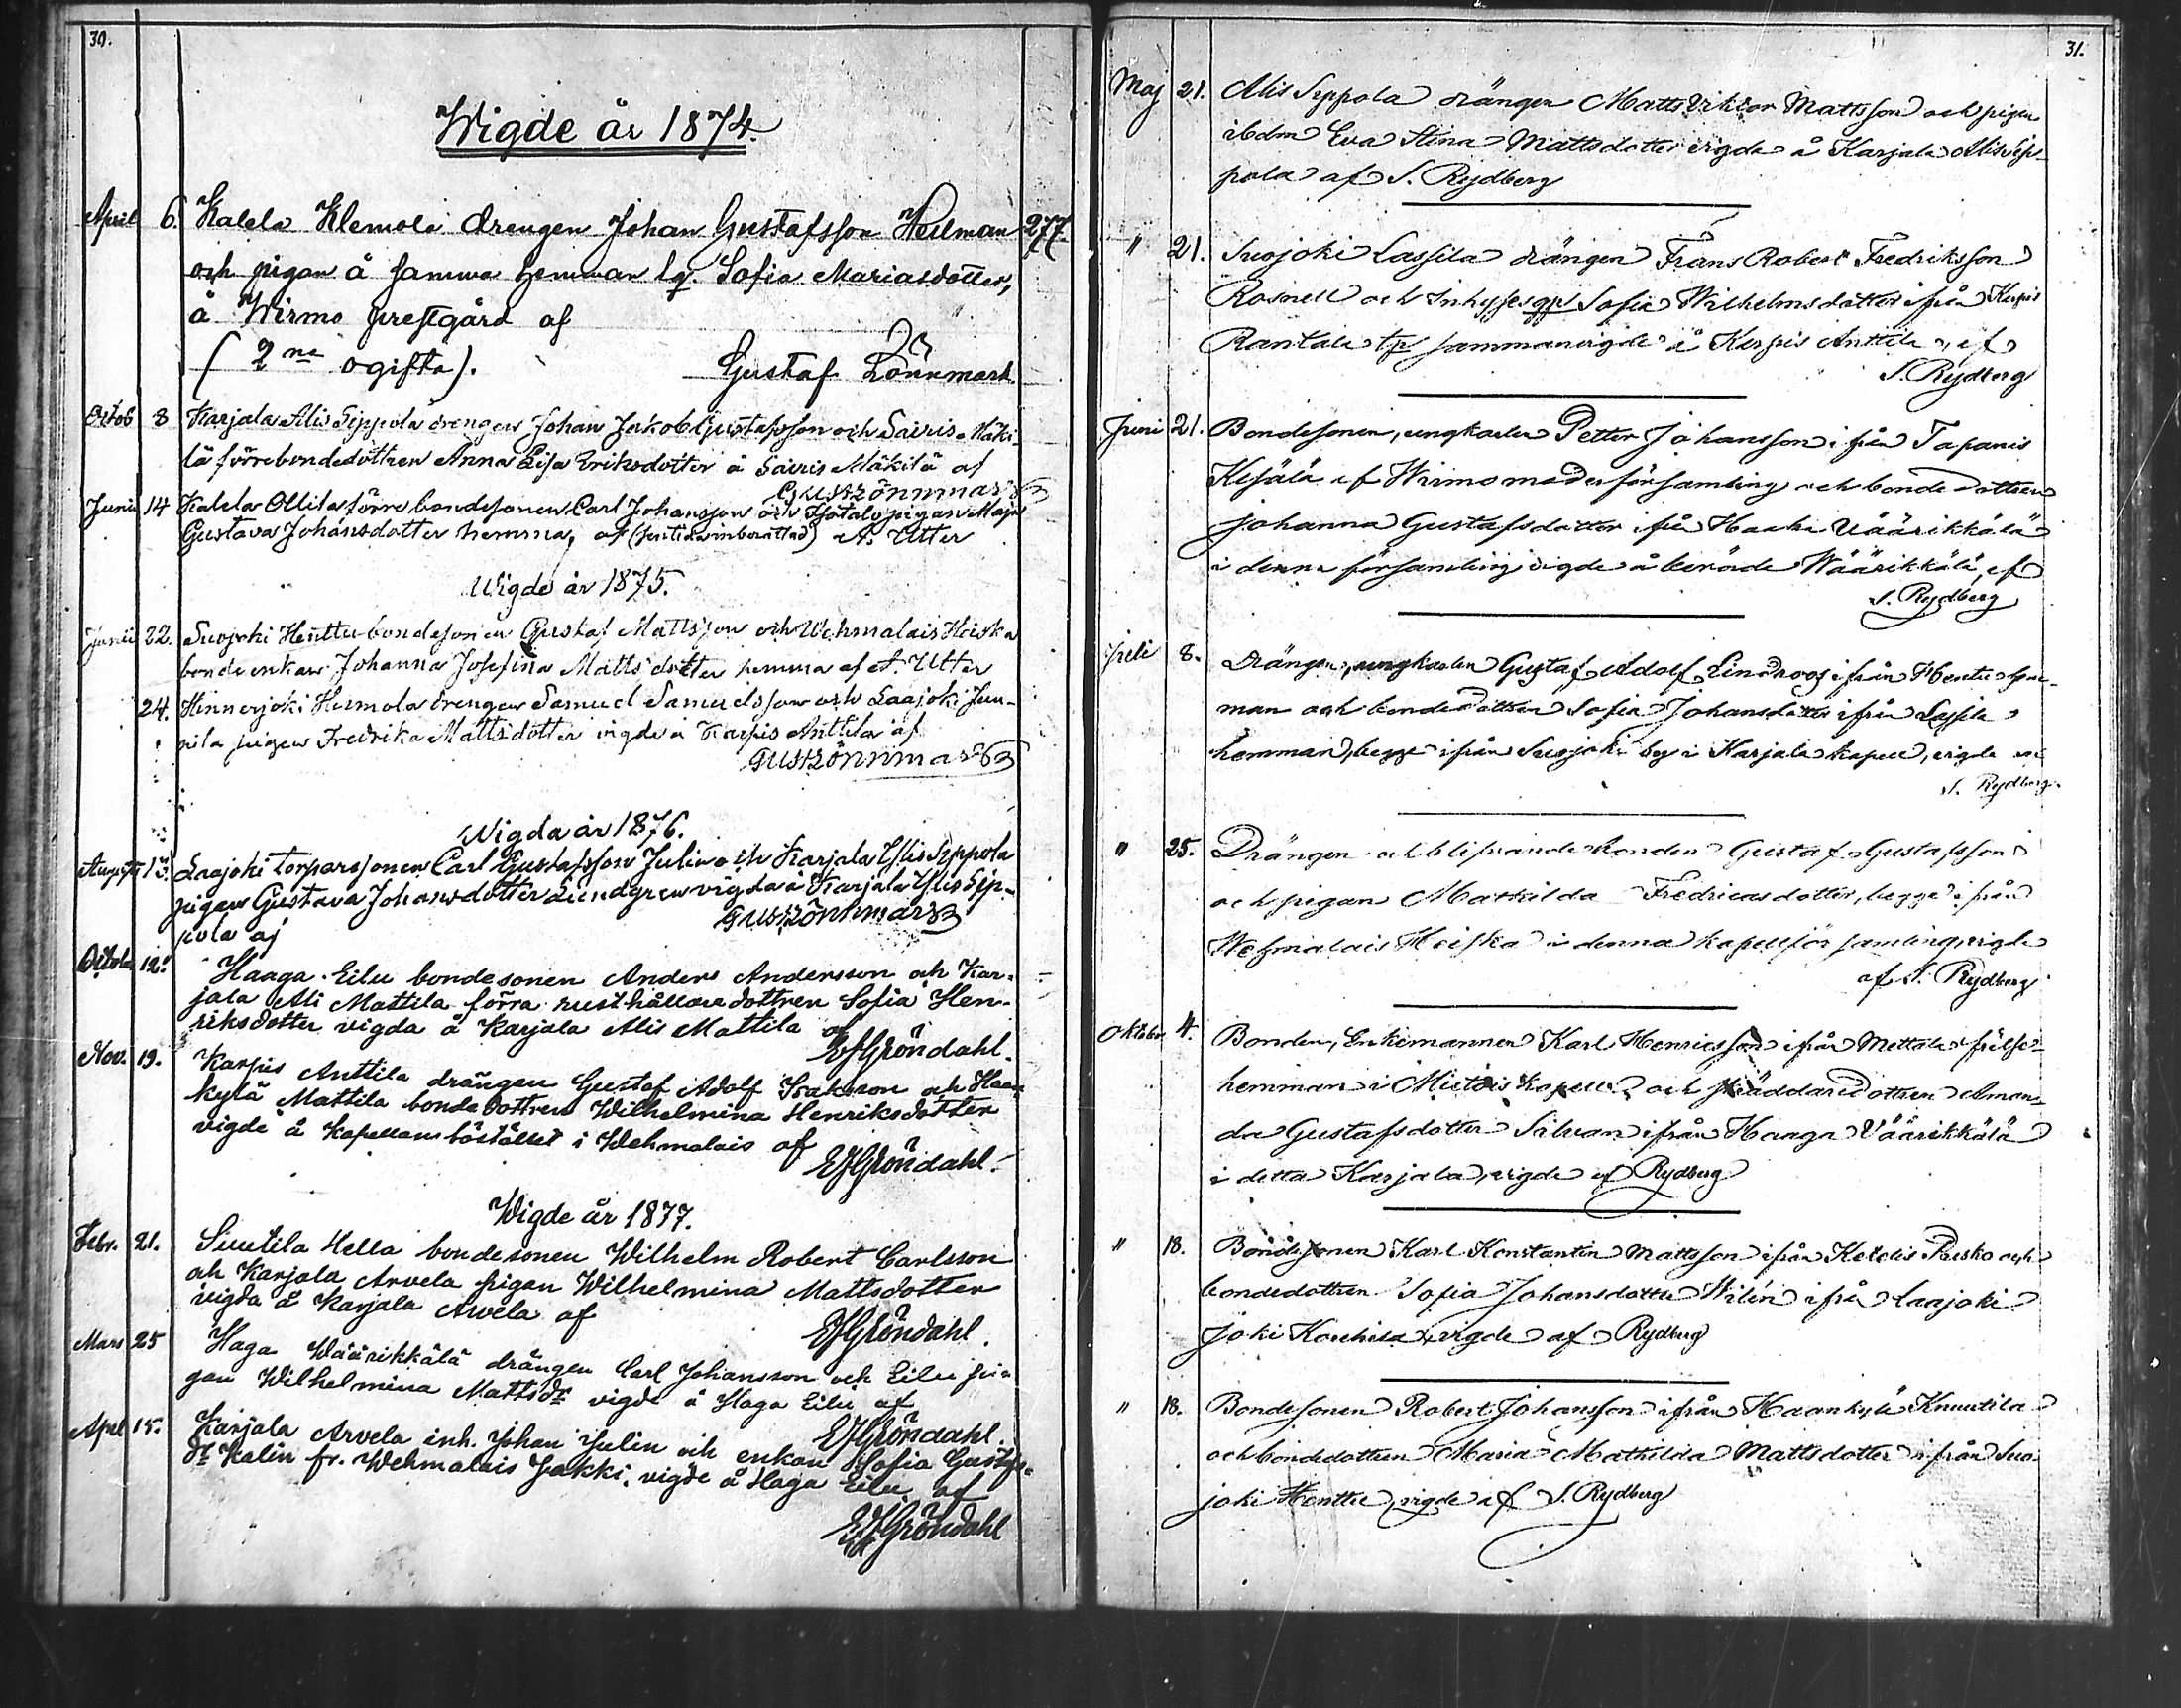 30.
Wigde år 1874.
April 6. Kalela Klemola drengen Johan Gustafsson Heilman 277.
och pigan å samma hemman lq. Sofia Mariasdotter,
å Wirmo prestgård af
(2 ne ogifta). Gustaf Lönnmark.
Octob 8 Karjala Alis Seppola drengen Johan Jakob Gustafsson och Sairis Mäki-
lä förre bondedottren Anna Lisa Eriksdotter å Sairis Mäkilä af
Gust Lönnmark
Junii 14 Kalela Ollila förre bondesonen Carl Johansson och pigan Maja
Gustava Johansdotter hemma, af A. Utter
Wigde år 1875.
Junii 22. Suojoki Henttu bondesonen Gustaf Mattsson och Wehmalais Heiska
bonde enkan Johanna Josefina Matts dotter hemma af A. Utter
24. Hinnerjoki Hermola drengen Samuel Samuelsson och Laajoki Jun-
nila pigan Fredrika Mattsdotter vigde å Karpis Anttila af
Gust Lönnmark
Wigda år 1876.
Augusti 13. Laajoki torparsonen Carl Gustafsson Julin och Karjala Ylis Seppola
pigan Gustava Johansdotter Lindgren vigda å Karjala Ylis Sep-
pola af Gust Lönnmark
Oktober 12. Haaga Eilu bondesonen Anders Andersson och Kar-
jala Ali Mattila förra rusthållare dottren Sofia Hen-
riksdotter vigda å Karjala Alis Mattila af
EJGröndahl.
Nov. 19. Karpis Anttila drängen Gustaf Adolf Isaksson och Haan-
kylä Mattila bonde dottren Wilhelmina Henriksdotter
vigde å Kapellansbostället i Wehmalais af
EJGröndahl.
Wigde år 1877.
Febr. 21. Suutila Hella bondesonen Wilhelm Robert Carlsson
och Karjala Arvela pigan Wilhelmina Mattsdotter
vigda å Karjala Arvela af
EJGröndahl.
Mars 25 Haga Wäärikkälä drängen Carl Johansson och Eilu pi-
gan Wilhelmina Mattsdr vigde å Haga Eilu af
EJGröndahl.
April 15. Karjala Arvela inh. Johan Julin och enkan Sofia Gustafs-
dr Kalin fr. Wehmalais Jakki, vigde å Haga Eilu af
EJGröndahl
31.
Maj 21. Alis Seppola drängen Matts Viktor Mattsson och pigan
ibdm Eva Stina Mattsdotter vigde å Karjala Alis Sep-
pola af S. Rydberg
" 21. Suojoki Lassila drängen Frans Robert Fredriksson
Rosnell och Inhyses Sofia Wilhelmsdotter ifrån Karpis
Rantala tp sammanvigde å Karpis Anttila, af
S. Rydberg
Juni 21. Bondesonen, ungkarlen Petter Johansson ifrån Tapanis
Kesälä af Wirmo moderförsamling och bondedottren
Johanna Gustafsdotter ifrån Haaka Wäärikkälä
i denna församling vigde å berörde Wäärikkälä, af
S. Rydberg
Juli 8. Drängen, ungkarlen Gustaf Adolf Lindroos ifrån Henttu hem-
man och bondedottren Sofia Johansdotter ifrån Lassila
hemman, begge ifrån Suojoki by i Karjala kapell, vigde af
S. Rydberg.
" 25. Drängen och blifvande bonden Gustaf Gustafsson
och pigan Mathilda Fredricasdotter, begge ifrån
Wehmalais Heiska i denna kapellförsamling, vigde
af S. Rydberg
Oktober 4. Bonden, Enkemannen Karl Henricsson ifrån Mettala frälse-
hemman i Mietois kapell och skräddaredottren Aman-
da Gustafsdotter Silvan ifrån Haaga Väärikkälä
i detta Karjala, vigde af Rydberg
" 18. Bondesonen Karl Konstantin Mattsson ifrån Ketelis Pusko och
bondedottren Sofia Johansdotter Wilén ifrån Laajoki
joki Kouhisa, vigde af Rydberg
" 18. Bondesonen Robert Johansson ifrån Haankylä Knuutila
och bondedottren Maria Mathilda Mattsdotter ifrån Suo-
joki Henttu, vigde af S. Rydberg